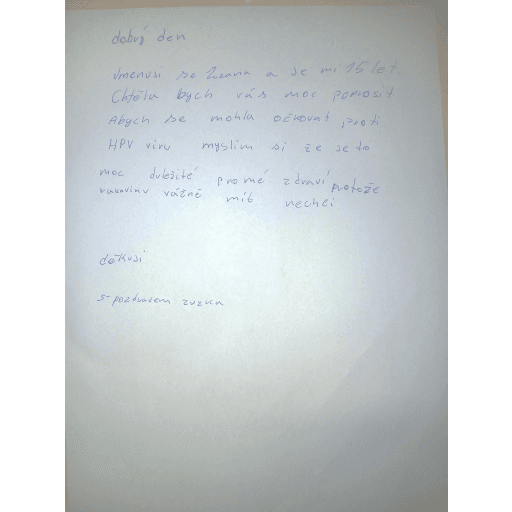 dobrý den
Jmenusi se Zuzana a je mi 15 let.
Chtěla bych vás moc poprosit
Abych se mohla očkovat proti
HPV viru myslim si že je to
moc duležité promé zdraví protože
rakovinu vážně mít nechci
děkusi
s-pozdravem zuzka